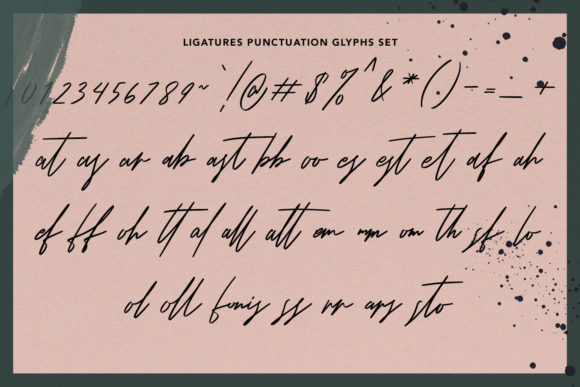 LIGATURES PUNCTUATION GLYPHS SET
0123456789~`!@#$%^&*(.)÷-=_+
at as ar ab ast bb oo es est et af ah
ef ff oh tt al all att em mm om th sf lo
ol oll fonis ss rr ars sto